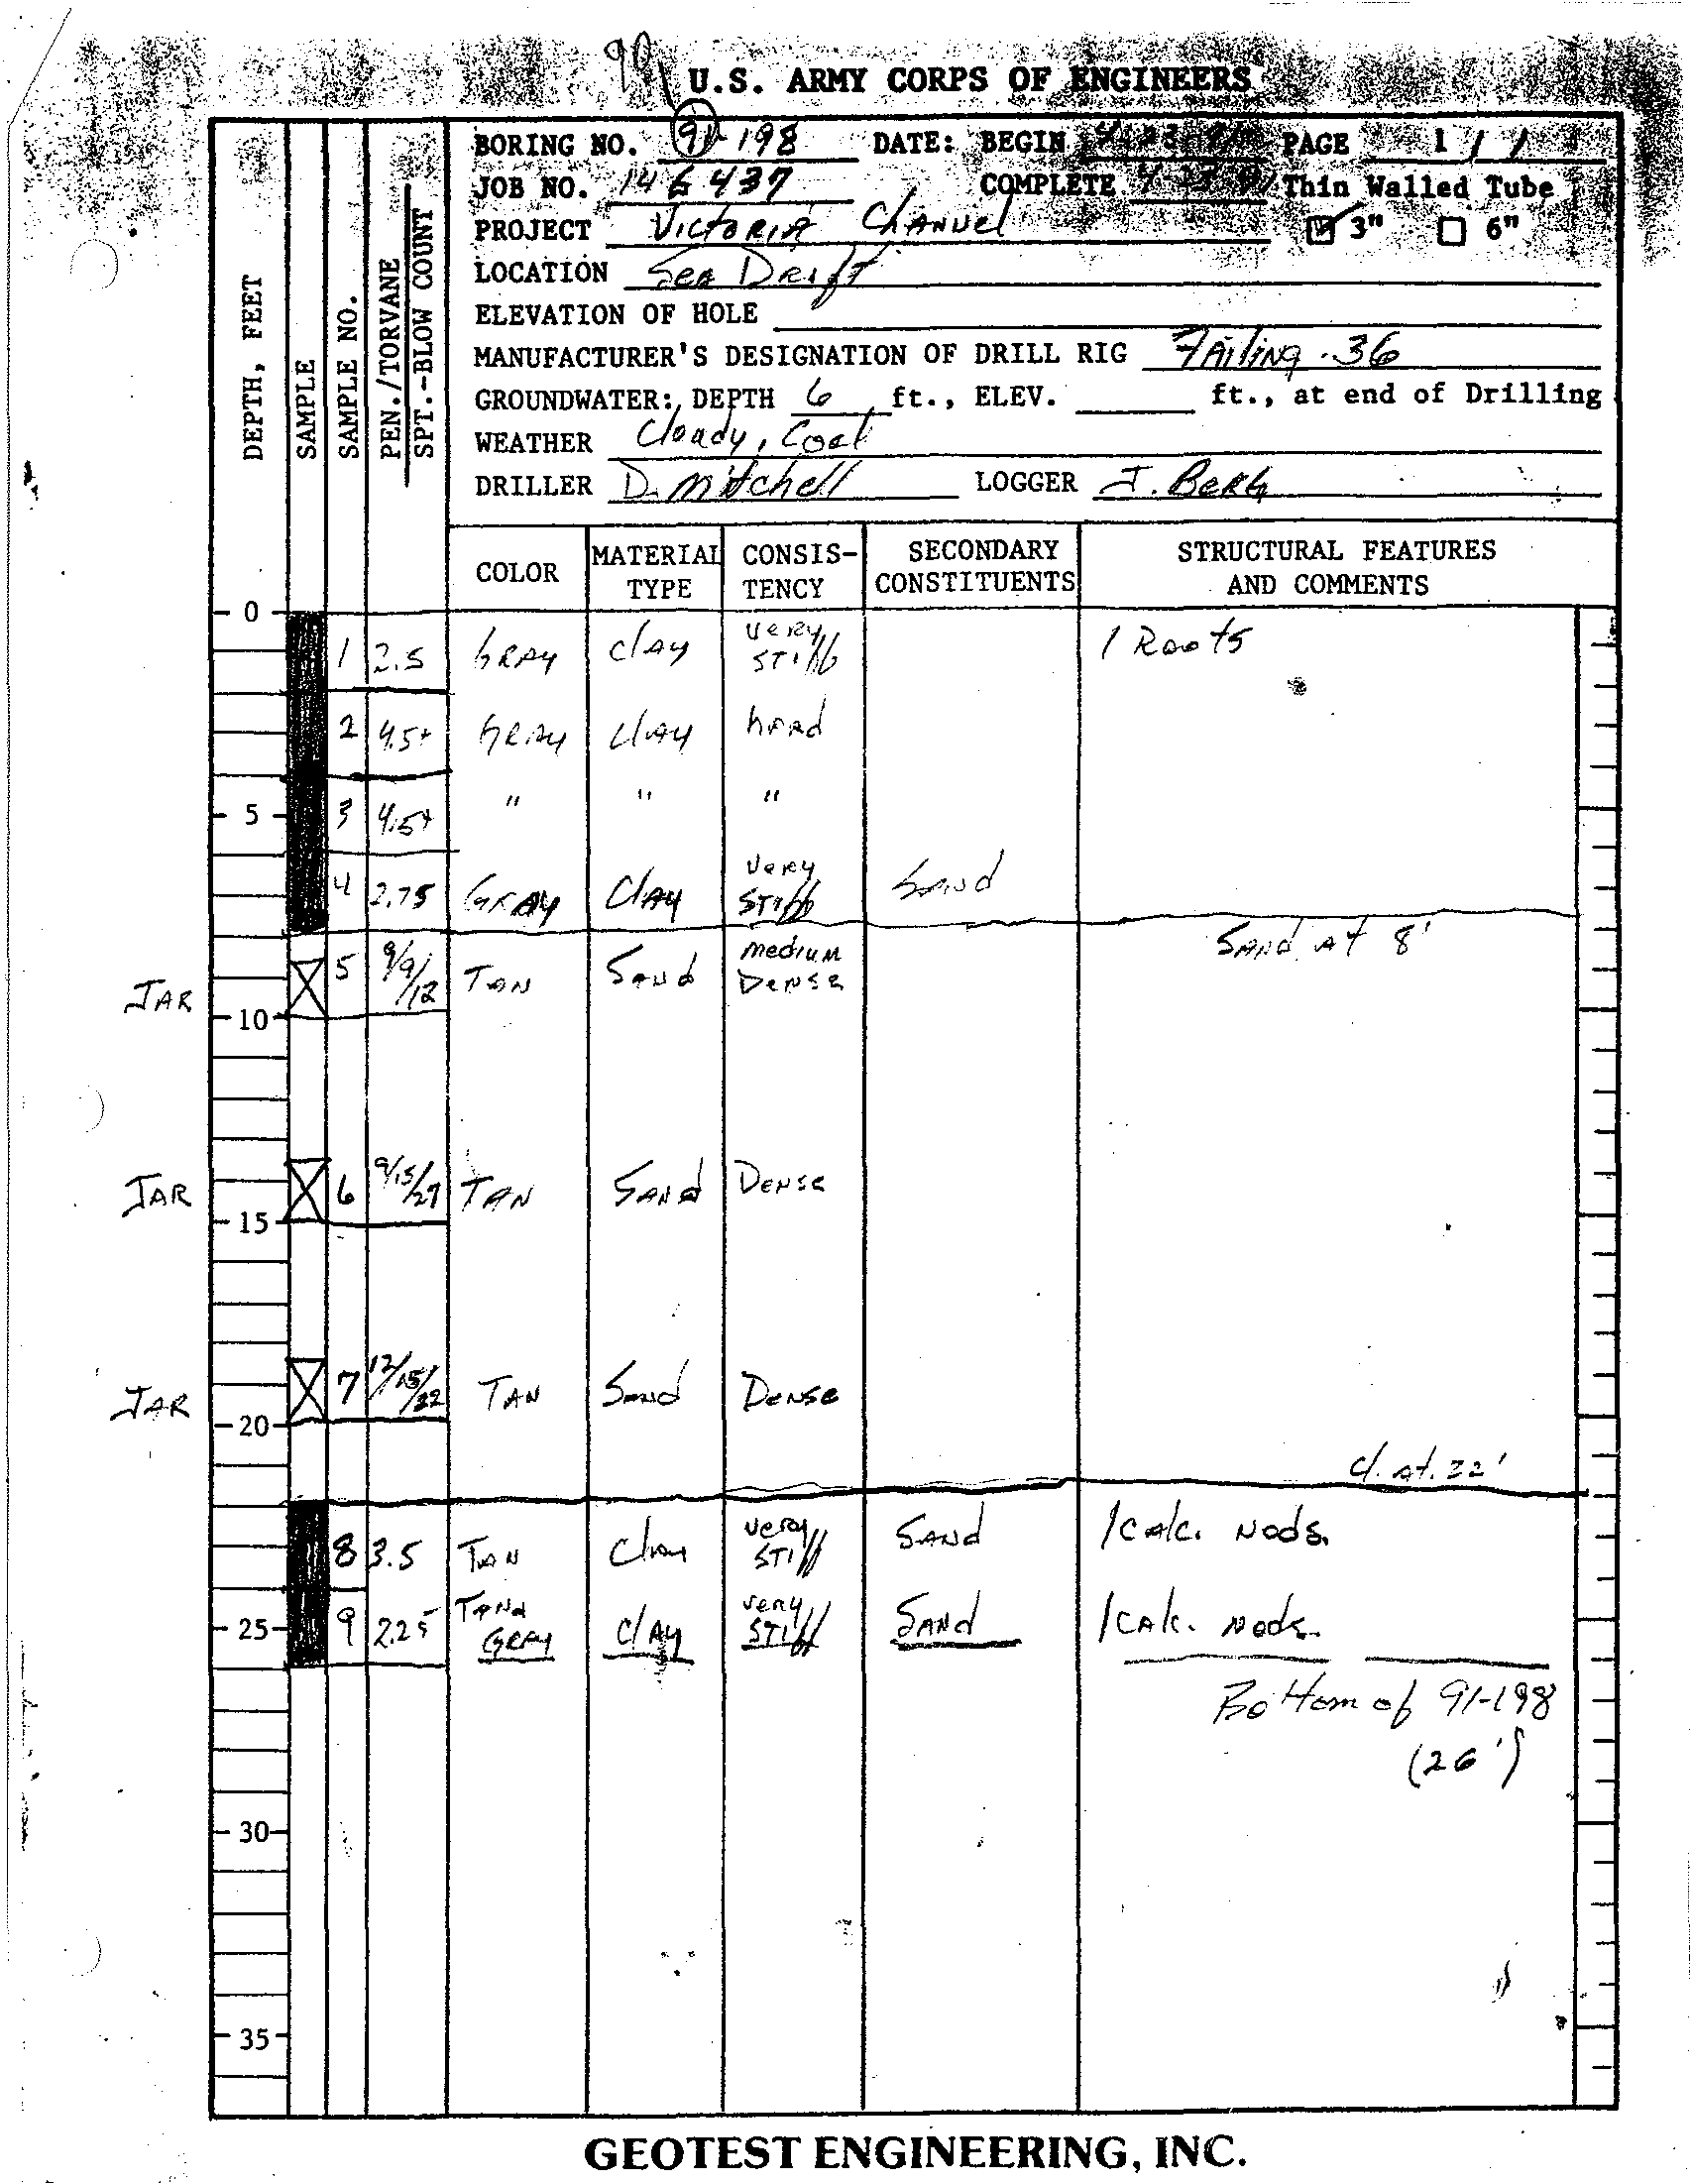 90
U.S. ARMY CORPS OF ENGINEERS
BORING NO. 91-198 DATE: BEGIN 4-23-91 PAGE 1 / 1
JOB NO. 146437 COMPLETE 4-23-91 Thin Walled Tube
PROJECT Victoria Channel 3" 6"
LOCATION Sea Drift
ELEVATION OF HOLE
MANUFACTURER'S DESIGNATION OF DRILL RIG Failing -36
GROUNDWATER: DEPTH 6 ft., ELEV. ft., at end of Drilling
WEATHER Cloudy, Cool
DRILLER D. Mitchell LOGGER J. Berg
DEPTH, FEET
SAMPLE
SAMPLE NO.
PEN./TORVANE
SPT.-BLOW COUNT
COLOR MATERIAL TYPE CONSIS-TENCY SECONDARY CONSTITUENTS STRUCTURAL FEATURES AND COMMENTS
0
1 2.5 GRAY clAy very stiff / Roots
2 4.5+ GRAY clAy hard
5 3 4.5+ " " "
4 2.75 GRAY ClAy very stiff Sand
Sand at 8'
JAR 5 9/9/12 TAN Sand medium Dense
10
JAR 6 9/15/27 TAN Sand Dense
15
JAR 7 12/15/22 TAN Sand Dense
20
cl. at. 22'
8 3.5 TAN Clay very stiff SAND / calc. Nods.
25 9 2.25 TAN & GRAY clAy very stiff SAND / calc. Nods.
Bottom of 91-198
(26')
30
35
GEOTEST ENGINEERING, INC.